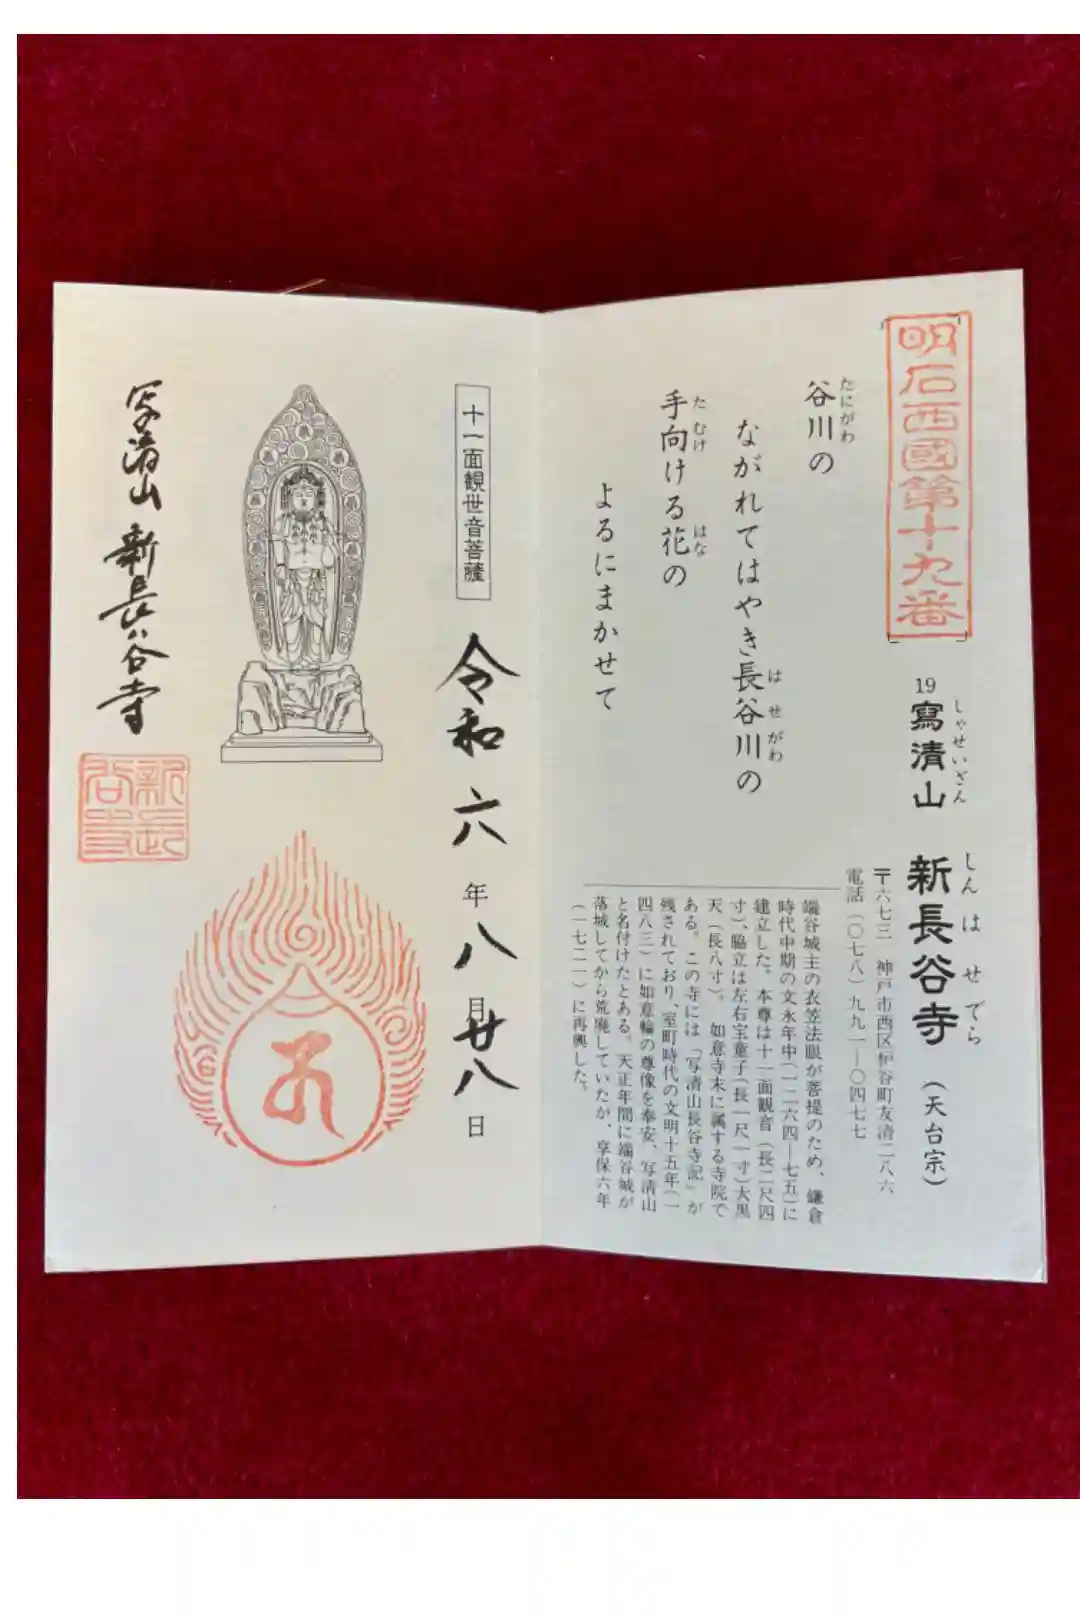 明石西國第十九番
19 寫清山 新長谷寺(天台宗)
しゃせいざん しんはせでら
〒六七三 神戸市西区枦谷町友清二八六
電話(〇七八)九九一―〇四七七
谷川の
たにがわ
ながれてはやき長谷川の
はせがわ
手向ける花の
たむけ はな
よるにまかせて
端谷城主の衣笠法眼が菩提のため、鎌倉
時代中期の文永年中(一二六四―七五)に
建立した。本尊は十一面観音(長二尺四
寸)、脇立は左右宝童子(長一尺一寸)大黒
天(長八寸)。如意寺末に属する寺院で
ある。この寺には「写清山長谷寺記」が
残されており、室町時代の文明十五年(一
四八三)に如意輪の尊像を奉安、写清山
と名付けたとある。天正年間に端谷城が
落城してから荒廃していたが、享保六年
(一七二一)に再興した。
十一面観世音菩薩
令和六年八月廿八日
写清山 新長谷寺
新長谷寺